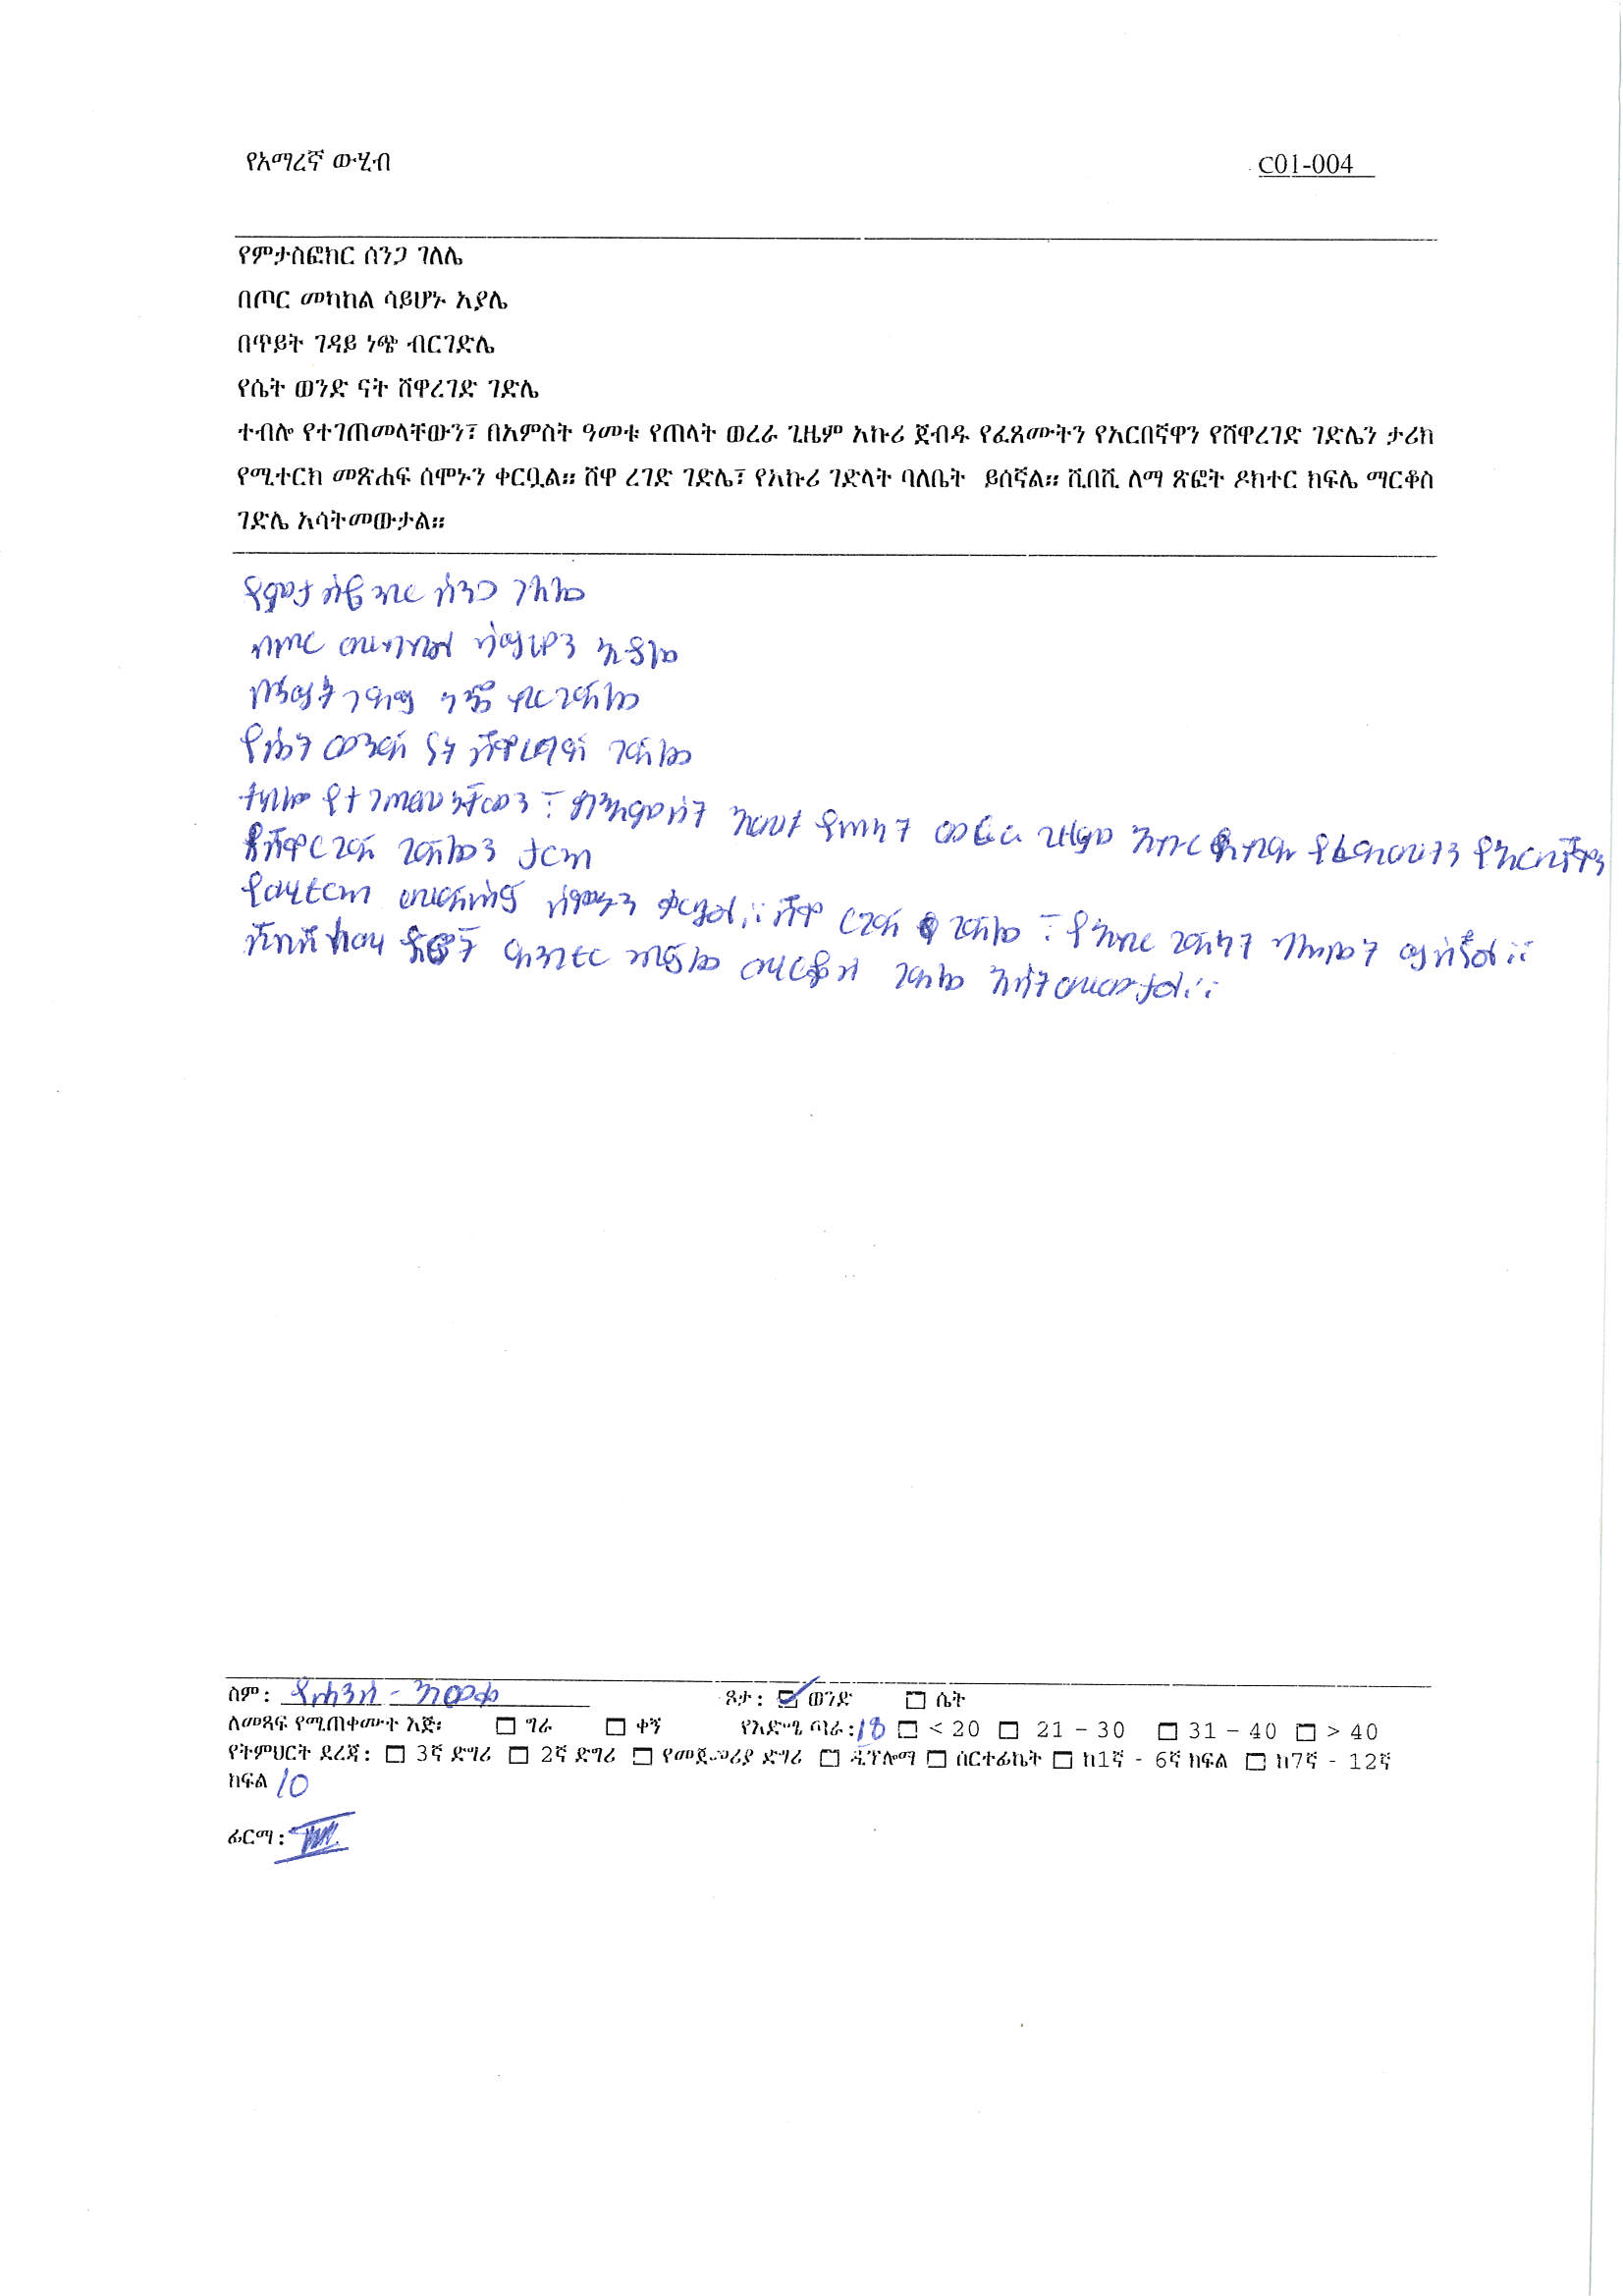 የአማረኛ ውሂብ C01-004
የምታስፎክር ሰንጋ ገለሌ
በጦር መካከል ሳይሆኑ አያሌ
በጥይት ገዳይ ነጭ ብርገድሌ
የሴት ወንድ ናት ሸዋረገድ ገድሌ
ተብሎ የተገጠመላቸውን፣ በአምስት ዓመቱ የጠላት ወረራ ጊዜም አኩሪ ጀብዱ የፈጸሙትን የአርበኛዋን የሸዋረገድ ገድሌን ታሪክ
የሚተርክ መጽሐፍ ሰሞኑን ቀርቧል። ሸዋ ረገድ ገድሌ፣ የአኩሪ ገድላት ባለቤት ይሰኛል። ሺበሺ ለማ ጽፎት ዶክተር ክፍሌ ማርቆስ
ገድሌ አሳትመውታል።
የምታስፎክር ሰንጋ ገለሌ
በጦር መካከል ሳይሆን አያሌ
በጥይት ገዳይ ነጭ ብርገድሌ
የሴት ወንድ ናት ሸዋረገድ ገድሌ
ተብሎ የተገጠመላቸውን፣ በአምስት አመቱ የጠላት ወረራ ጊዜም አኩሪ ጀብዱ የፈጸሙትን የአርበኛዋን
የሸዋርገድ ገድሌን ታርክ
የሚተርክ መጽሐፍ ሰሞኑን ቀርቧል። ሸዋ ርገድ ገድሌ፣ የአኩሪ ገድላት ባለቤት ይሰኛል።
ሺበሺ ለማ ጽፎት ዶክተር ክፍሌ ማርቆስ ገድሌ አሳትመውታል።
ስም: ዮሐንስ - አወቀ ጾታ: ወንድ ሴት
ለመጻፍ የሚጠቀሙት እጅ፡ ግራ ቀኝ የእድሜ ጣሪ:18 < 20 21 – 30 31 – 40 > 40
የትምህርት ደረጃ: 3ኛ ድግሪ 2ኛ ድግሪ የመጀመሪያ ድግሪ ዲፕሎማ ሰርተፊኬት ከ1ኛ - 6ኛ ክፍል ከ7ኛ - 12ኛ
ክፍል 10
ፊርማ: